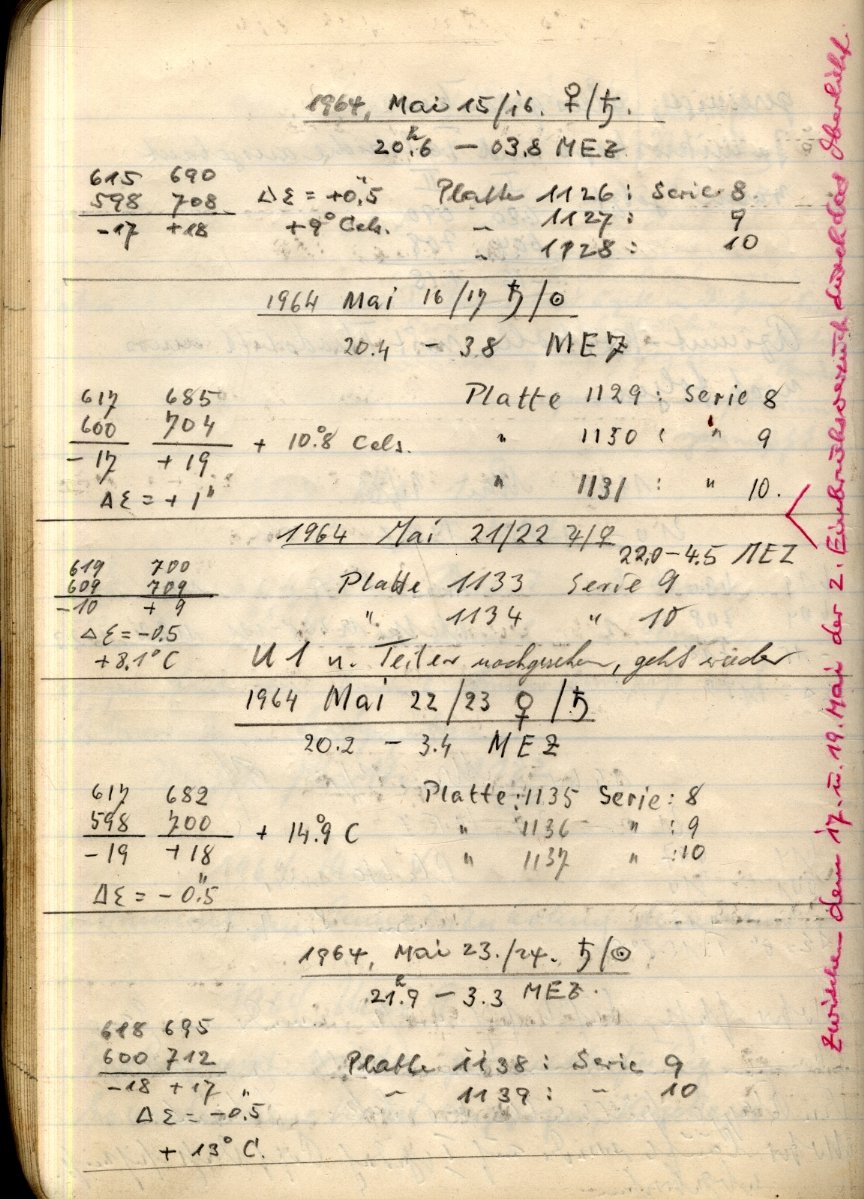 1964, Mai 15/16. ♀/♄.
20.ʰ6 – 03.8 MEZ
615 690
598 708
-17 +18
Δε = +0."5
+9° Cels.
Platte 1126 : Serie 8.
" 1127 : 9
" 1128 : 10
1964 Mai 16/17 ♄/☉
20.4 – 3.8 MEZ
617 685
600 704
-17 +19
+ 10.°8 Cels.
Δε = + 1"
Platte 1129 : Serie 8
" 1130 : " 9
" 1131 : " 10.
1964 Mai 21/22 ♃/♀
22.0 – 4.5 MEZ
619 700
609 709
-10 + 9
Δε = -0.5
+8.1° C
Platte 1133 Serie 9
" 1134 " 10
U 1 u. nachgesehen, geht wieder
1964 Mai 22/23 ♀/♄
20.2 – 3.4 MEZ
617 682
598 700
-19 +18
+ 14.°9 C
Δε = -0."5
Platte : 1135 Serie : 8
" 1136 " : 9
" 1137 " : 10
1964, Mai 23./24. ♄/☉
21.ʰ9 – 3.3 MEZ.
618 695
600 712
-18 +17
Δε = -0."5
+ 13° C.
Platte 1138 : Serie 9
" 1139 : " 10
Zwischen dem 17. u. 19. Mai der 2. Einbruchsversuch durch das Oberlicht.